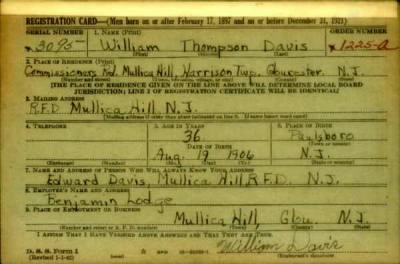 REGISTRATION CARD—(Men born on or after February 17, 1897 and on or before December 31, 1921)
SERIAL NUMBER 1. NAME (Print) ORDER NUMBER
3095 William Thompson Davis 1225-A
2. PLACE OF RESIDENCE (Print)
Commissioners Rd. Mullica Hill, Harrison Twp. Gloucester N.J.
[THE PLACE OF RESIDENCE GIVEN ON THE LINE ABOVE WILL DETERMINE LOCAL BOARD
JURISDICTION; LINE 2 OF REGISTRATION CERTIFICATE WILL BE IDENTICAL]
3. MAILING ADDRESS
R.F.D. Mullica Hill, N.J.
[Mailing address if other than place indicated on line 2. If same insert word same]
4. TELEPHONE 5. AGE IN YEARS 6. PLACE OF BIRTH
36 Paulsboro
DATE OF BIRTH
Aug. 19 1906 N.J.
(Exchange) (Number) (Mo.) (Day) (Yr.) (State or country)
7. NAME AND ADDRESS OF PERSON WHO WILL ALWAYS KNOW YOUR ADDRESS
Edward Davis, Mullica Hill R.F.D. N.J.
8. EMPLOYER'S NAME AND ADDRESS
Benjamin Lodge
9. PLACE OF EMPLOYMENT OR BUSINESS
Mullica Hill, Glou. N.J.
(Number and street or R. F. D. number) (Town) (County) (State)
I AFFIRM THAT I HAVE VERIFIED ABOVE ANSWERS AND THAT THEY ARE TRUE.
D. S. S. Form 1 William Davis
(Revised 1-1-42) (Registrant's signature)